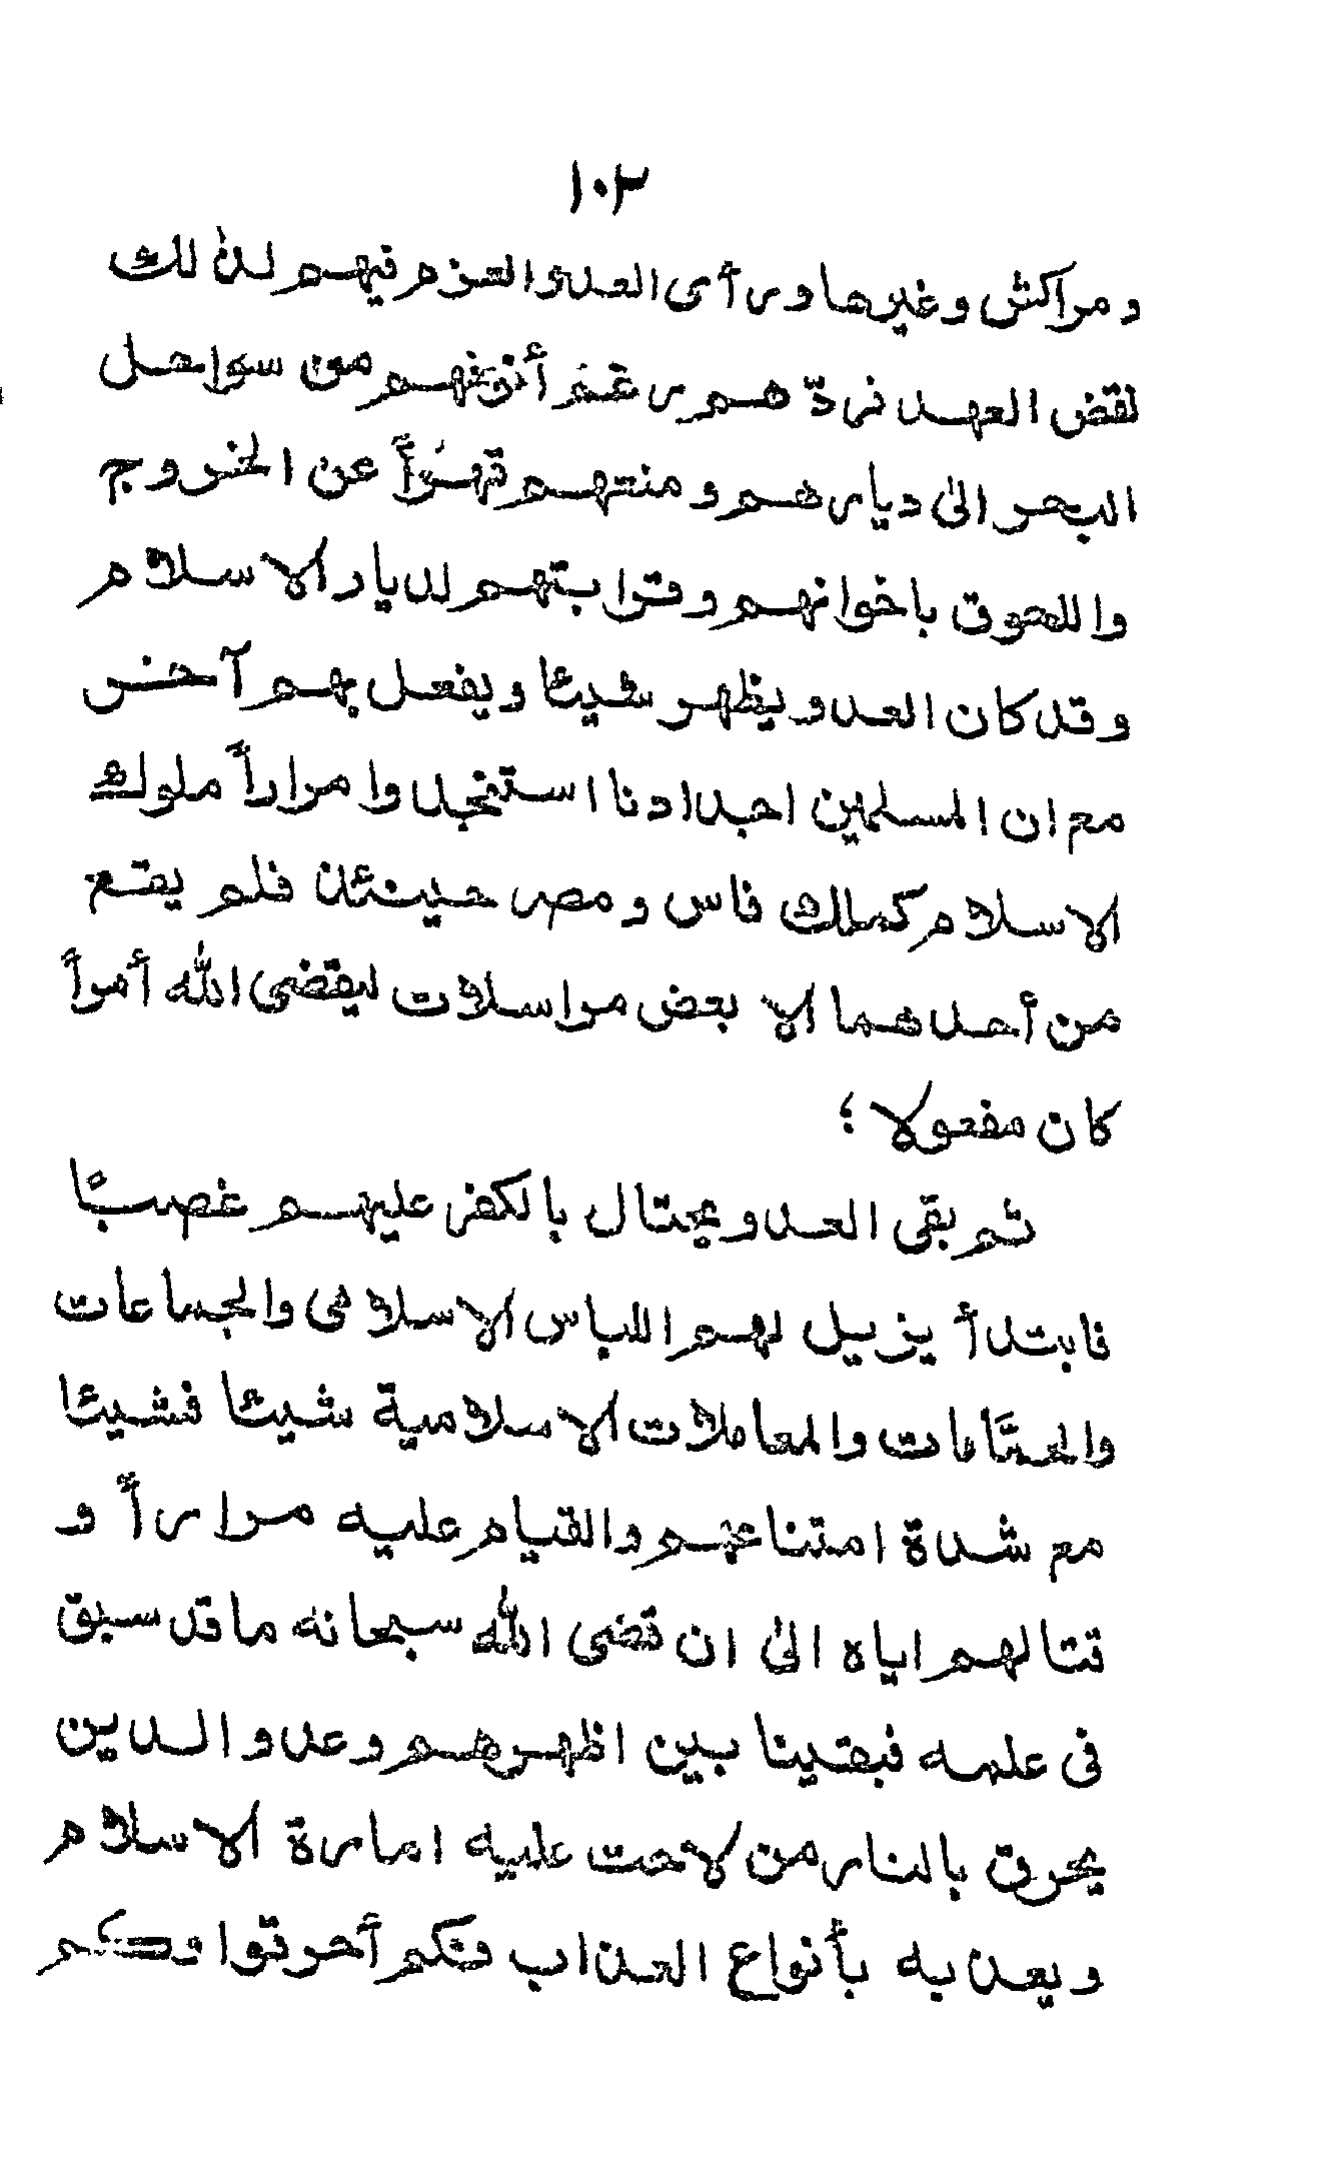 ١٠٢
ومراكش وغيرها ورأى العدو العزم فيهم لذلك
نقض العهد فردّ هم رغم أنوفهم من سواحل
البحر الى ديارهم ومنعهم قهراً عن الخروج
واللحوق باخوانهم وقرابتهم لديار الاسلام
وقد كان العدو يظهر شيئا ويفعل بهم آخر
مع ان المسلمين اجدادنا استنجدوا مراراً ملوك
الاسلام كملك فاس ومصر حينئذ فلم يقع
من أحدهما الا بعض مراسلات ليقضى الله أمراً
كان مفعولا ؛
ثم بقى العدو يحتال بالكفر عليهم غصبًا
فابتدأ يزيل لهم اللباس الاسلامى والجماعات
والحمّامات والمعاملات الاسلامية شيئا فشيئا
مع شدة امتناعهم والقيام عليه مراراً و
قتالهم اياه الى ان قضى الله سبحانه ما قد سبق
فى علمه فبقينا بين اظهرهم وعدو الدين
يحرق بالنار من لاحت عليه امارة الاسلام
ويعذبه بأنواع العذاب فكم أحرقوا وكم